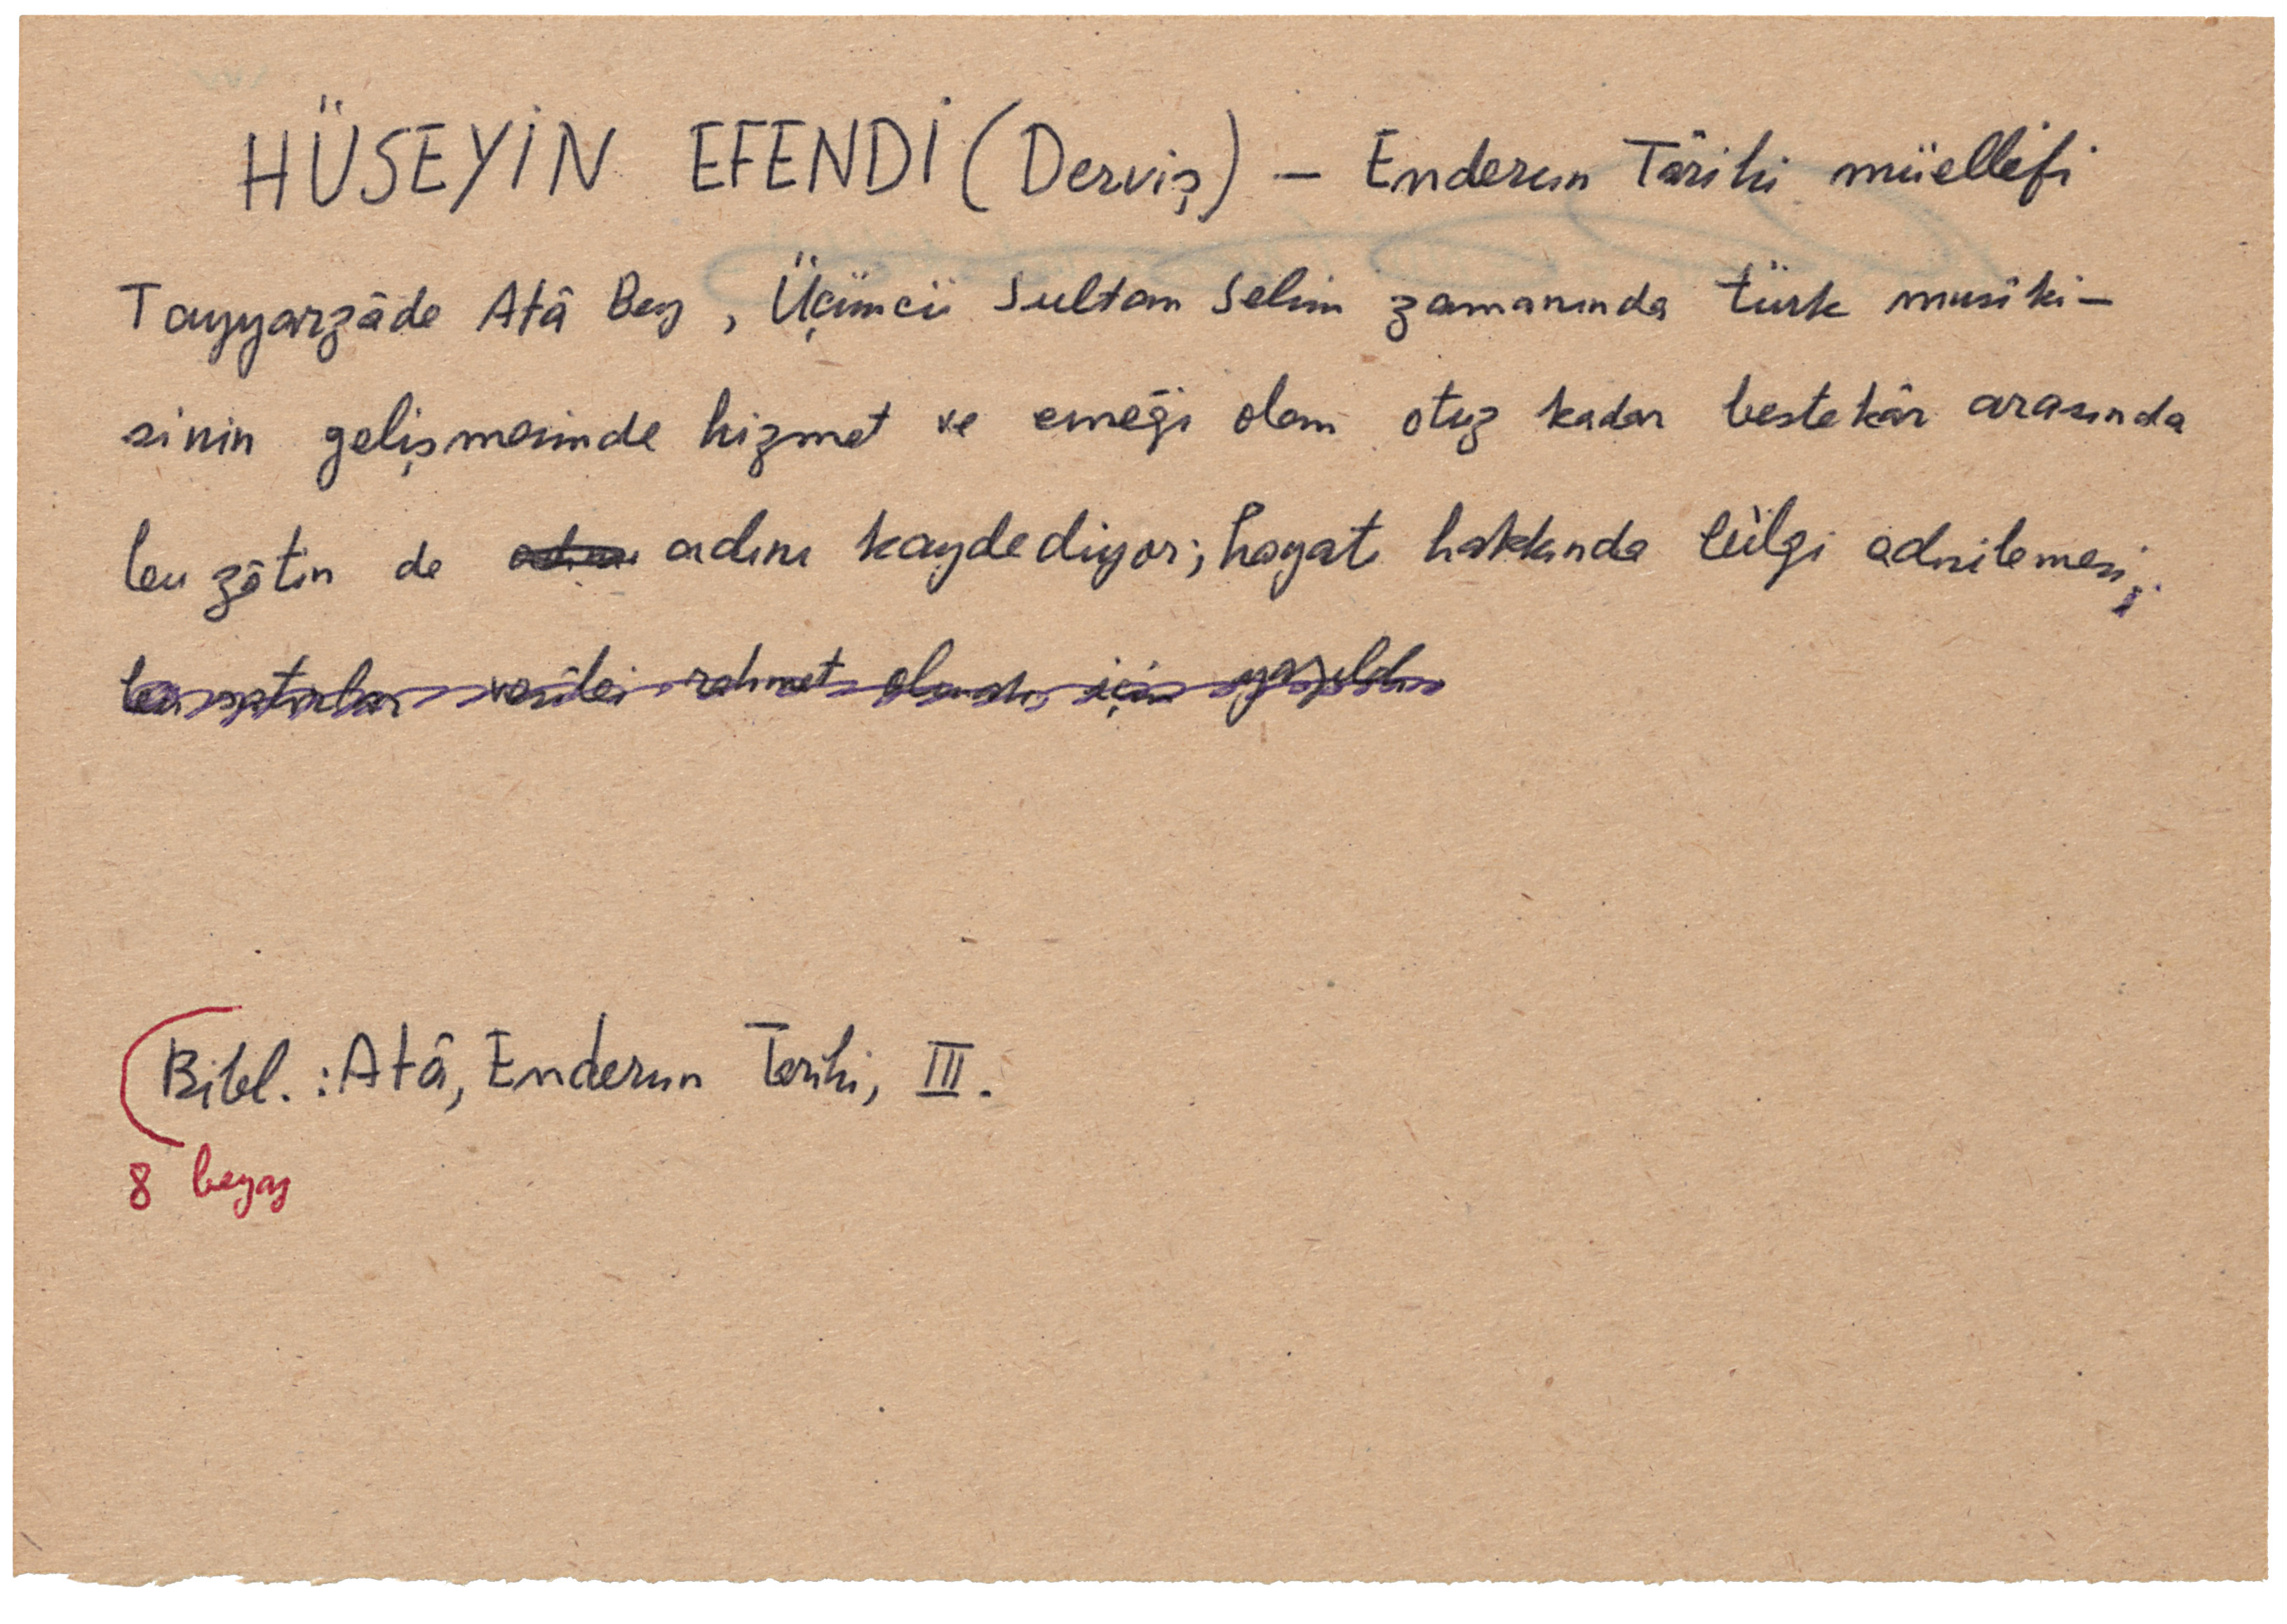 HÜSEYİN EFENDİ (Derviş) – Enderun Târihi müellifi
Tayyarzâde Atâ Bey, Üçüncü Sultan Selim zamanında türk musiki-
sinin gelişmesinde hizmet ve emeği olan otuz kadar bestekâr arasında
bu zâtın de adını kaydediyor; hayatı hakkında bilgi edinilemedi;
bu satırlar vesilei rahmet olması için yazıldı
Bibl.: Atâ, Enderun Tarihi, III.
8 beyaz